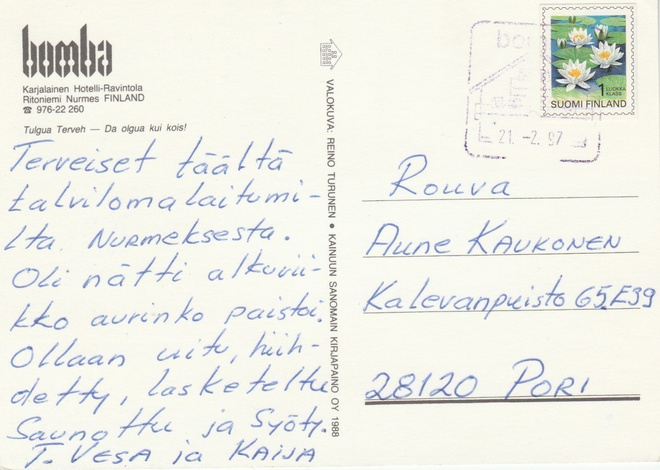 bomba
Karjalainen Hotelli-Ravintola
Ritoniemi Nurmes FINLAND
☎ 976-22 260
Tulgua Terveh — Da olgua kui kois!
Terveiset täältä
talvilomalaitumi-
lta Nurmeksesta.
Oli nätti alkuvii-
kko aurinko paistoi.
Ollaan uitu, hiih-
detty, lasketeltu
Saunottu ja Syöty.
T. VESA ja KAIJA
VALOKUVA: REINO TURUNEN • KAINUUN SANOMAIN KIRJAPAINO OY 1988
1 LUOKKA
KLASS
SUOMI FINLAND
21. -2. 97
Rouva
Aune KAUKONEN
Kalevanpuisto 65.E39
28120 PORI